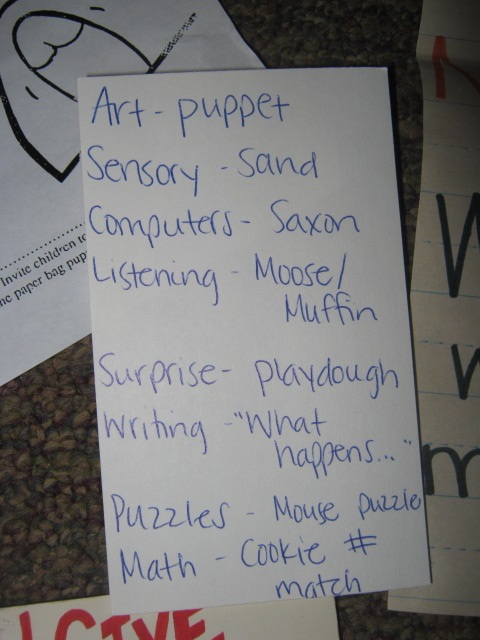 Art - puppet
Sensory - Sand
Computers - Saxon
Listening - Moose/
Muffin
Surprise - playdough
Writing - "What
happens..."
Puzzles - Mouse puzzle
Math - Cookie #
match
Invite children to
paper bag